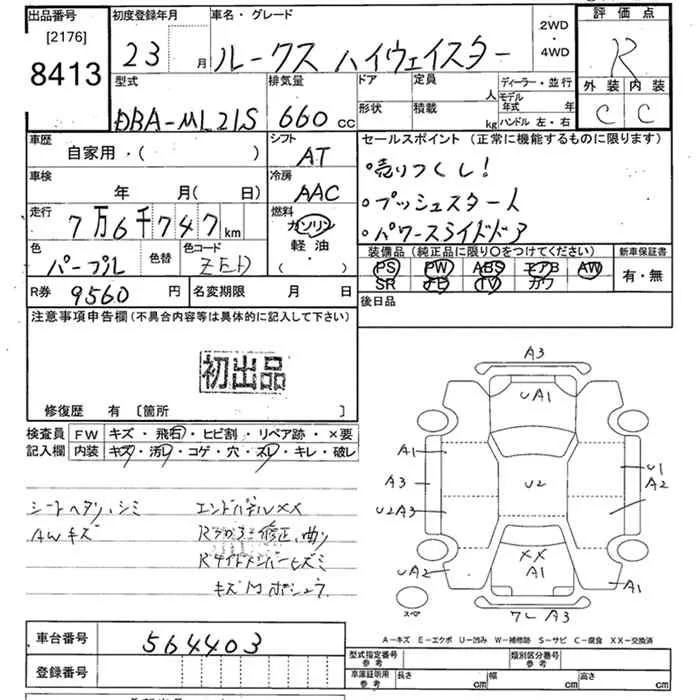 出品番号
[2176]
8413
初度登録年月
23 月
車名・グレード
ルークス ハイウェイスター
2WD
・
4WD
評価点
R
外装 内装
C C
型式
DBA-ML21S
排気量
660 cc
ドア
形状
定員
人
積載
kg
ディーラー・並行
モデル年式 年
ハンドル 左・右
車歴
自家用・( )
シフト
AT
セールスポイント (正常に機能するものに限ります)
・売りつくし!
・プッシュスタート
・パワースライドドア
車検
年 月( 日)
冷房
AAC
走行
7万6千747km
燃料
ガソリン
軽油
( ・ )
色
パープル
色替
色コード
装備品 (純正品に限り○をつけてください)
PS PW ABS エアB AW
SR ナビ TV カワ
新車保証書
有・無
R券 9560 円
名変期限 月 日
後日品
注意事項申告欄 (不具合内容等は具体的に記入して下さい)
初出品
修復歴 有 [箇所 ]
検査員記入欄
FW キズ・飛石・ヒビ割・リペア跡・×要
内装 キズ・汚レ・コゲ・穴・スレ・キレ・破レ
シートヘタリ、シミ
AWキズ
エンドパネルXX
修正、曲り
Rサイドメンバーヒズミ
A3
UA1
A1
A3
U2A3
UA2
U2
U1
A2
XX
A1
A1
スペア
A3
A−キズ E−エクボ U−凹み W−補修跡 S−サビ C−腐食 XX−交換済
車台番号
564403
登録番号
型式指定番号
参考
類別区分番号
参考
車庫証明用
参考
長さ cm
幅 cm
高さ cm